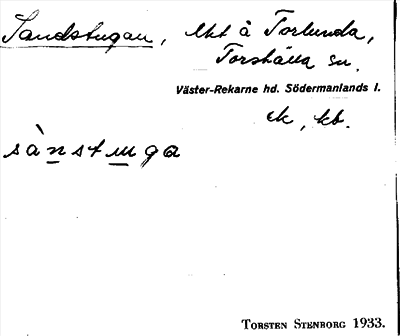 Sandstugan, lht å Torlunda,
Torshälla sn.
Väster-Rekarne hd. Södermanlands l.
ek, kb.
sà̀nstuga
TORSTEN STENBORG 1933.